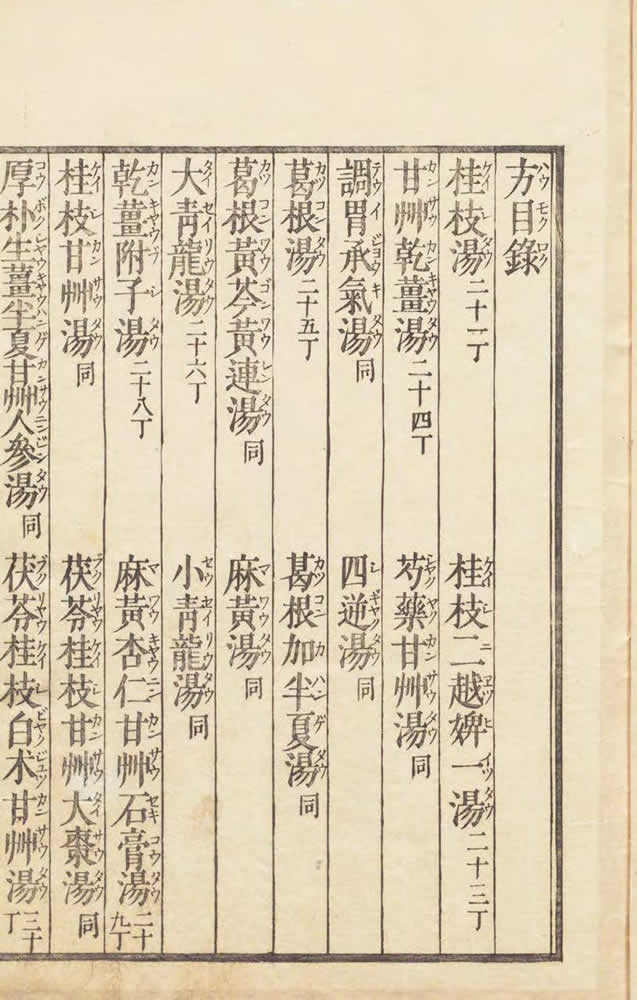 方目錄
桂枝湯二十一丁
桂枝二越婢一湯二十三丁
甘艸乾薑湯二十四丁
芍藥甘艸湯同
調胃承氣湯同
四逆湯同
葛根湯二十五丁
葛根加半夏湯同
葛根黃芩黃連湯同
麻黃湯同
大靑龍湯二十六丁
小靑龍湯同
乾薑附子湯二十八丁
麻黃杏仁甘艸石膏湯二十九丁
桂枝甘艸湯同
茯苓桂枝甘艸大棗湯同
厚朴生薑半夏甘艸人參湯同
茯苓桂枝白朮甘艸湯三十丁